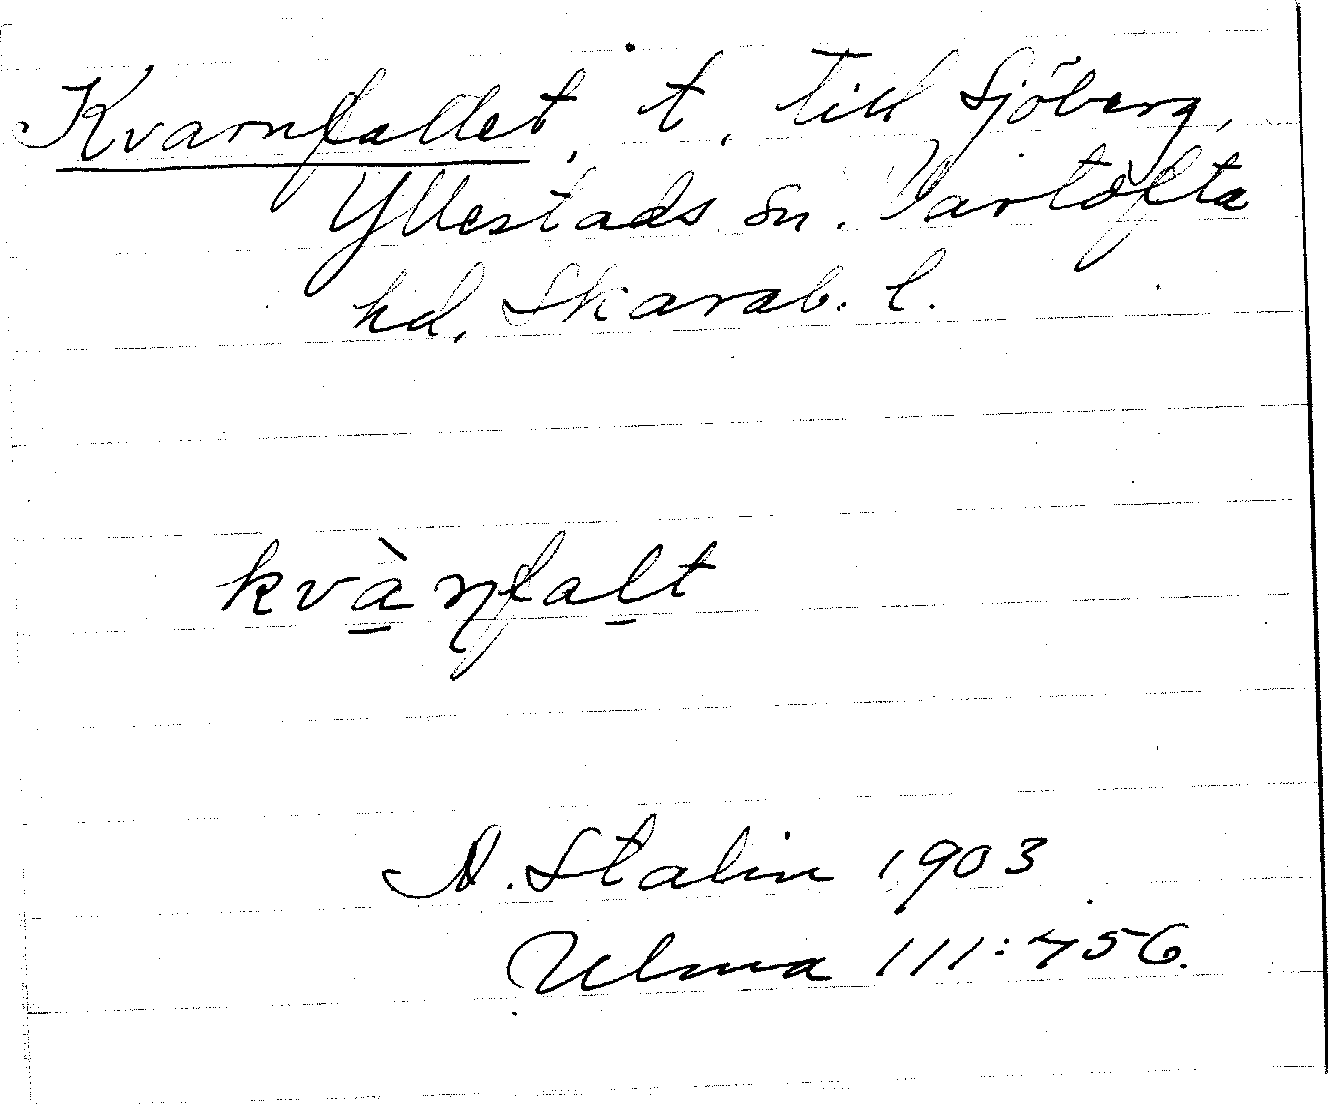 Kvarnfallet, t. till Sjöberg,
Yllestads sn. Vartofta
hd. Skarab. l.
kvà̱ɳfaḻt
A. Stalin 1903
Ulma 111:456.